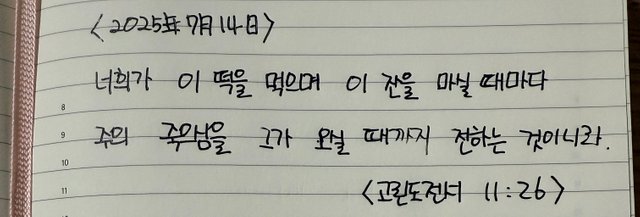 <2025年 7月 14日>
너희가 이 떡을 먹으며 이 잔을 마실 때마다
8
주의 죽으심을 그가 오실 때까지 전하는 것이니라.
9
10
<고린도전서 11:26>
11